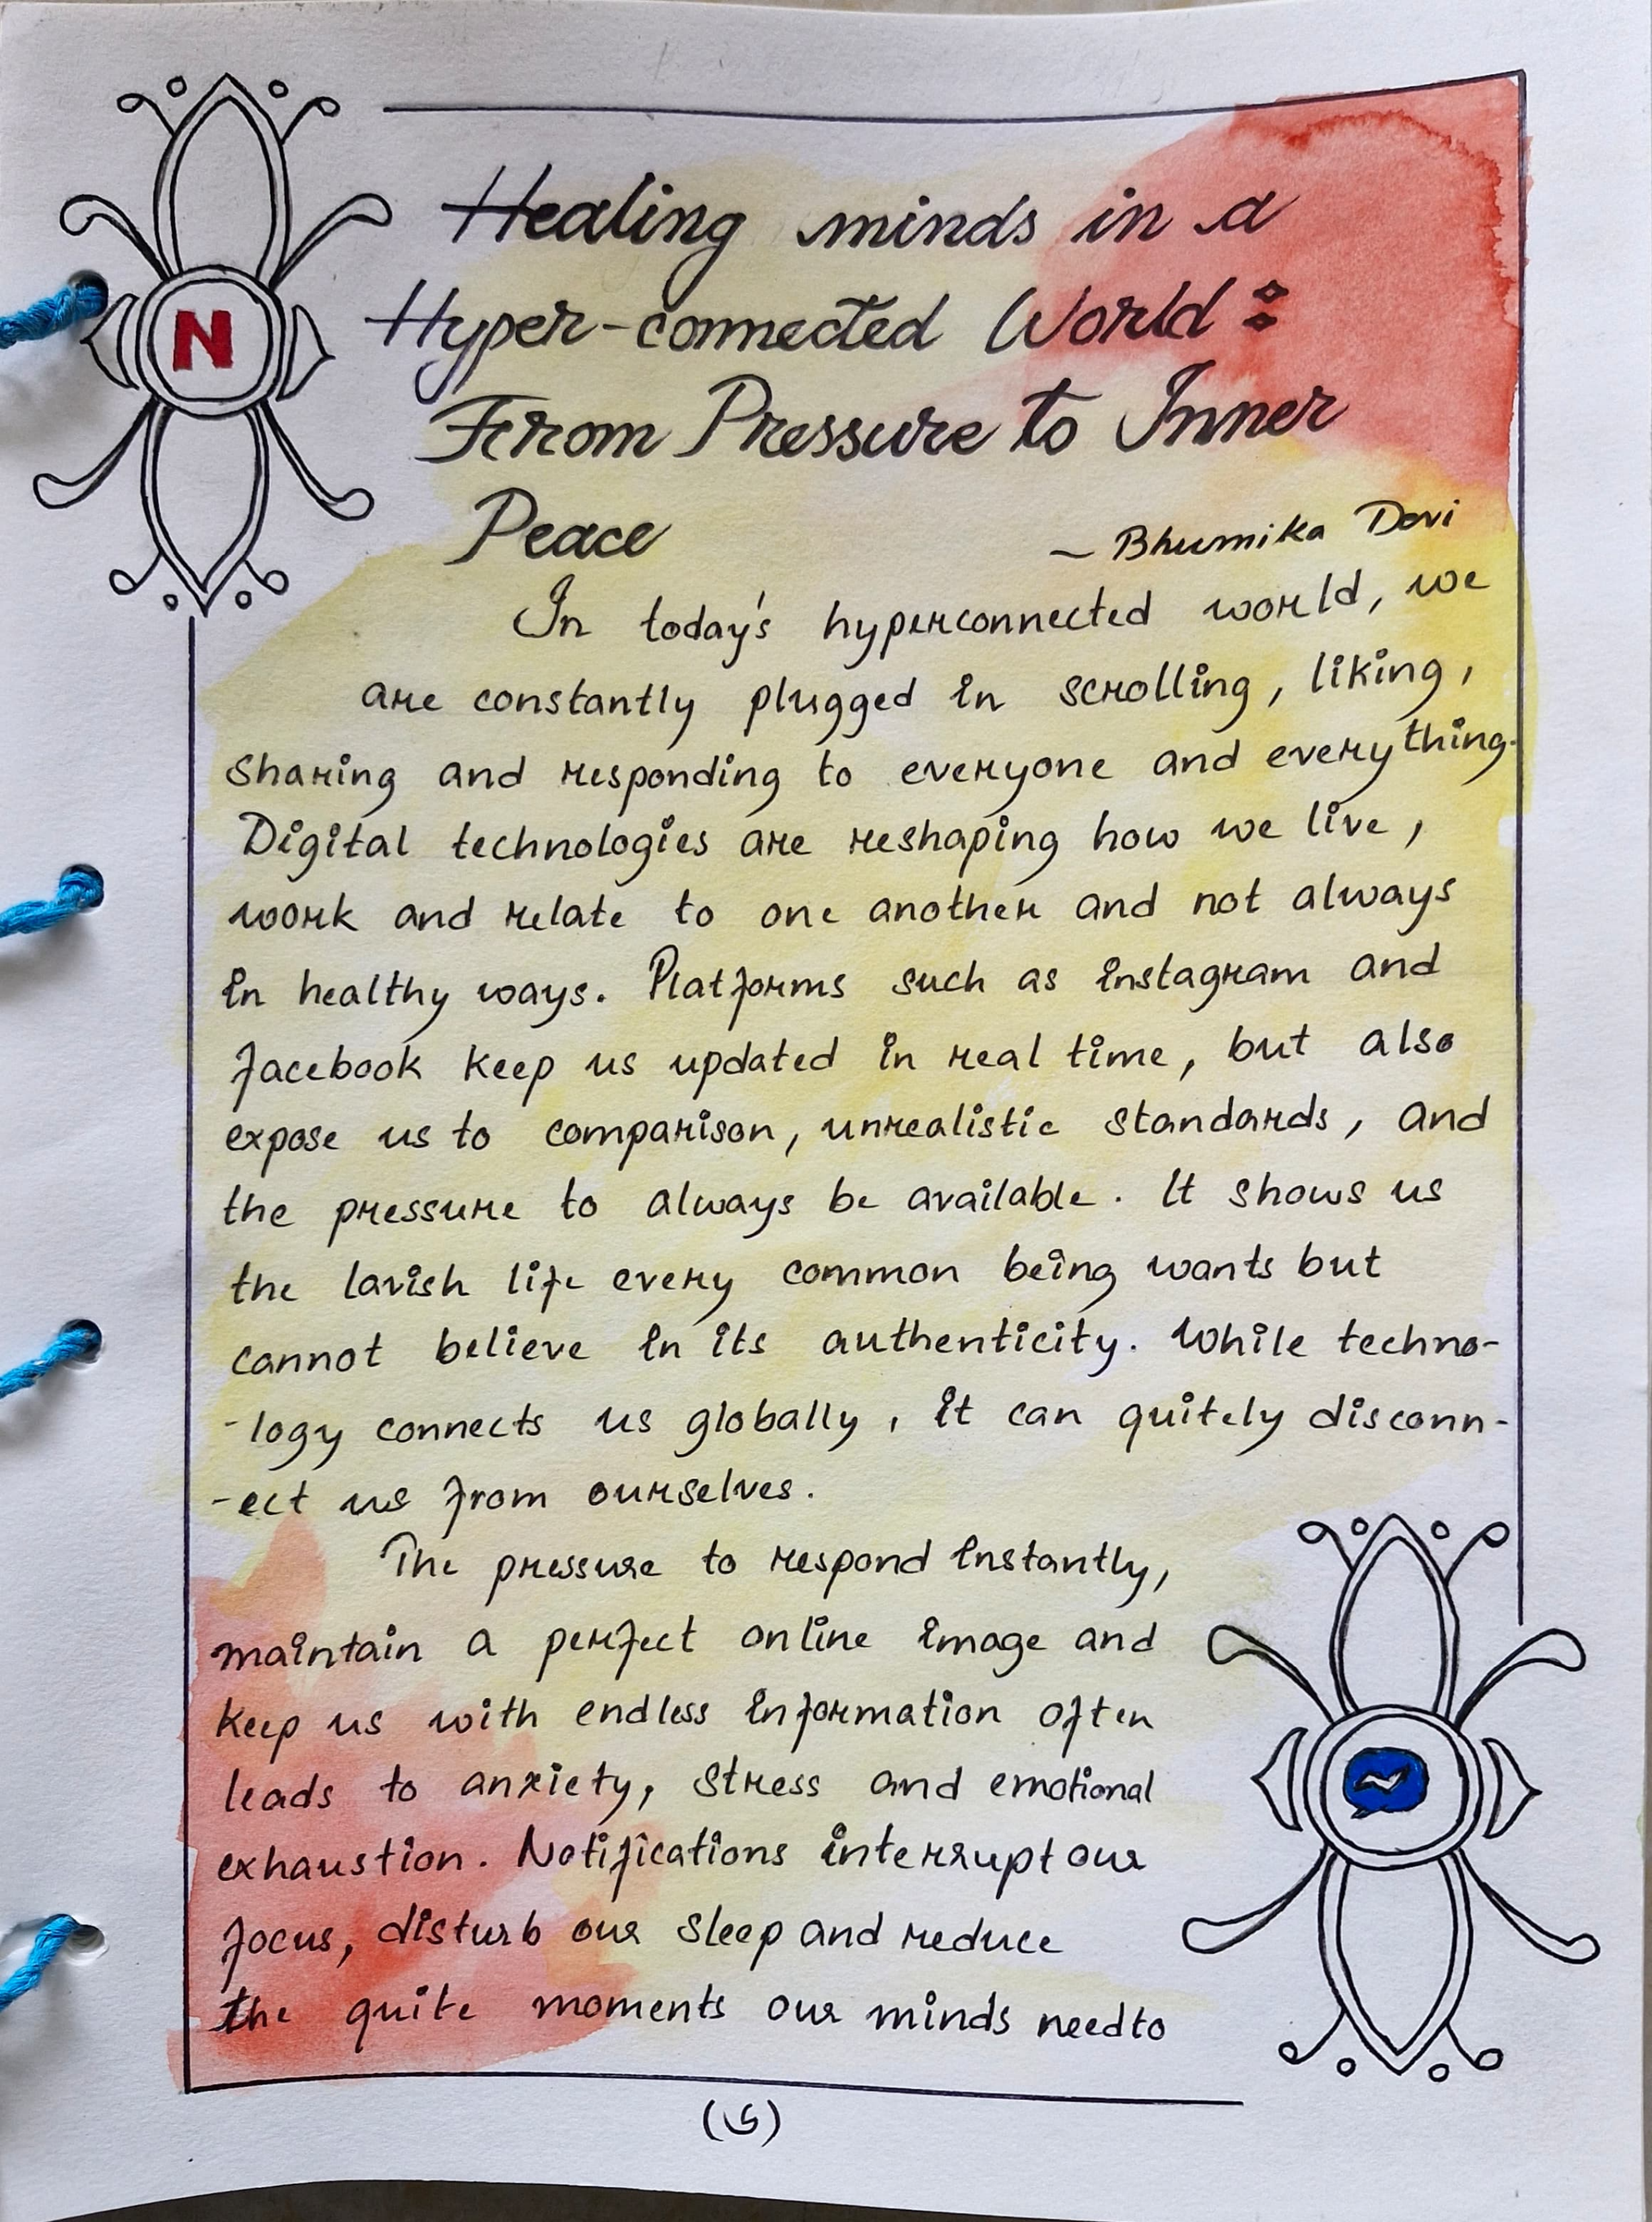 N
Healing minds in a
Hyper-connected World:
From Pressure to Inner
Peace
~ Bhumika Devi
In today's hyperconnected world, we
are constantly plugged in scrolling, liking,
sharing and responding to everyone and everything.
Digital technologies are reshaping how we live,
work and relate to one another and not always
in healthy ways. Platforms such as instagram and
facebook keep us updated in real time, but also
expose us to comparison, unrealistic standards, and
the pressure to always be available. It shows us
the lavish life every common being wants but
cannot believe in its authenticity. While techno-
-logy connects us globally, it can quitely disconn-
-ect us from ourselves.
The pressure to respond instantly,
maintain a perfect online image and
keep us with endless information often
leads to anxiety, stress and emotional
exhaustion. Notifications interrupt our
focus, disturb our sleep and reduce
the quite moments our minds need to